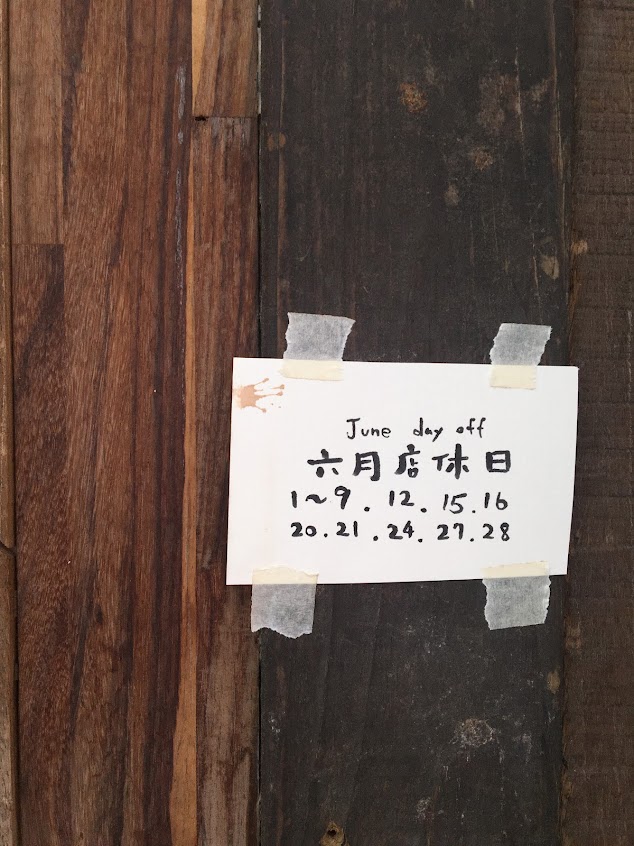 June day off
六月店休日
1~9.12.15.16
20.21.24.27.28